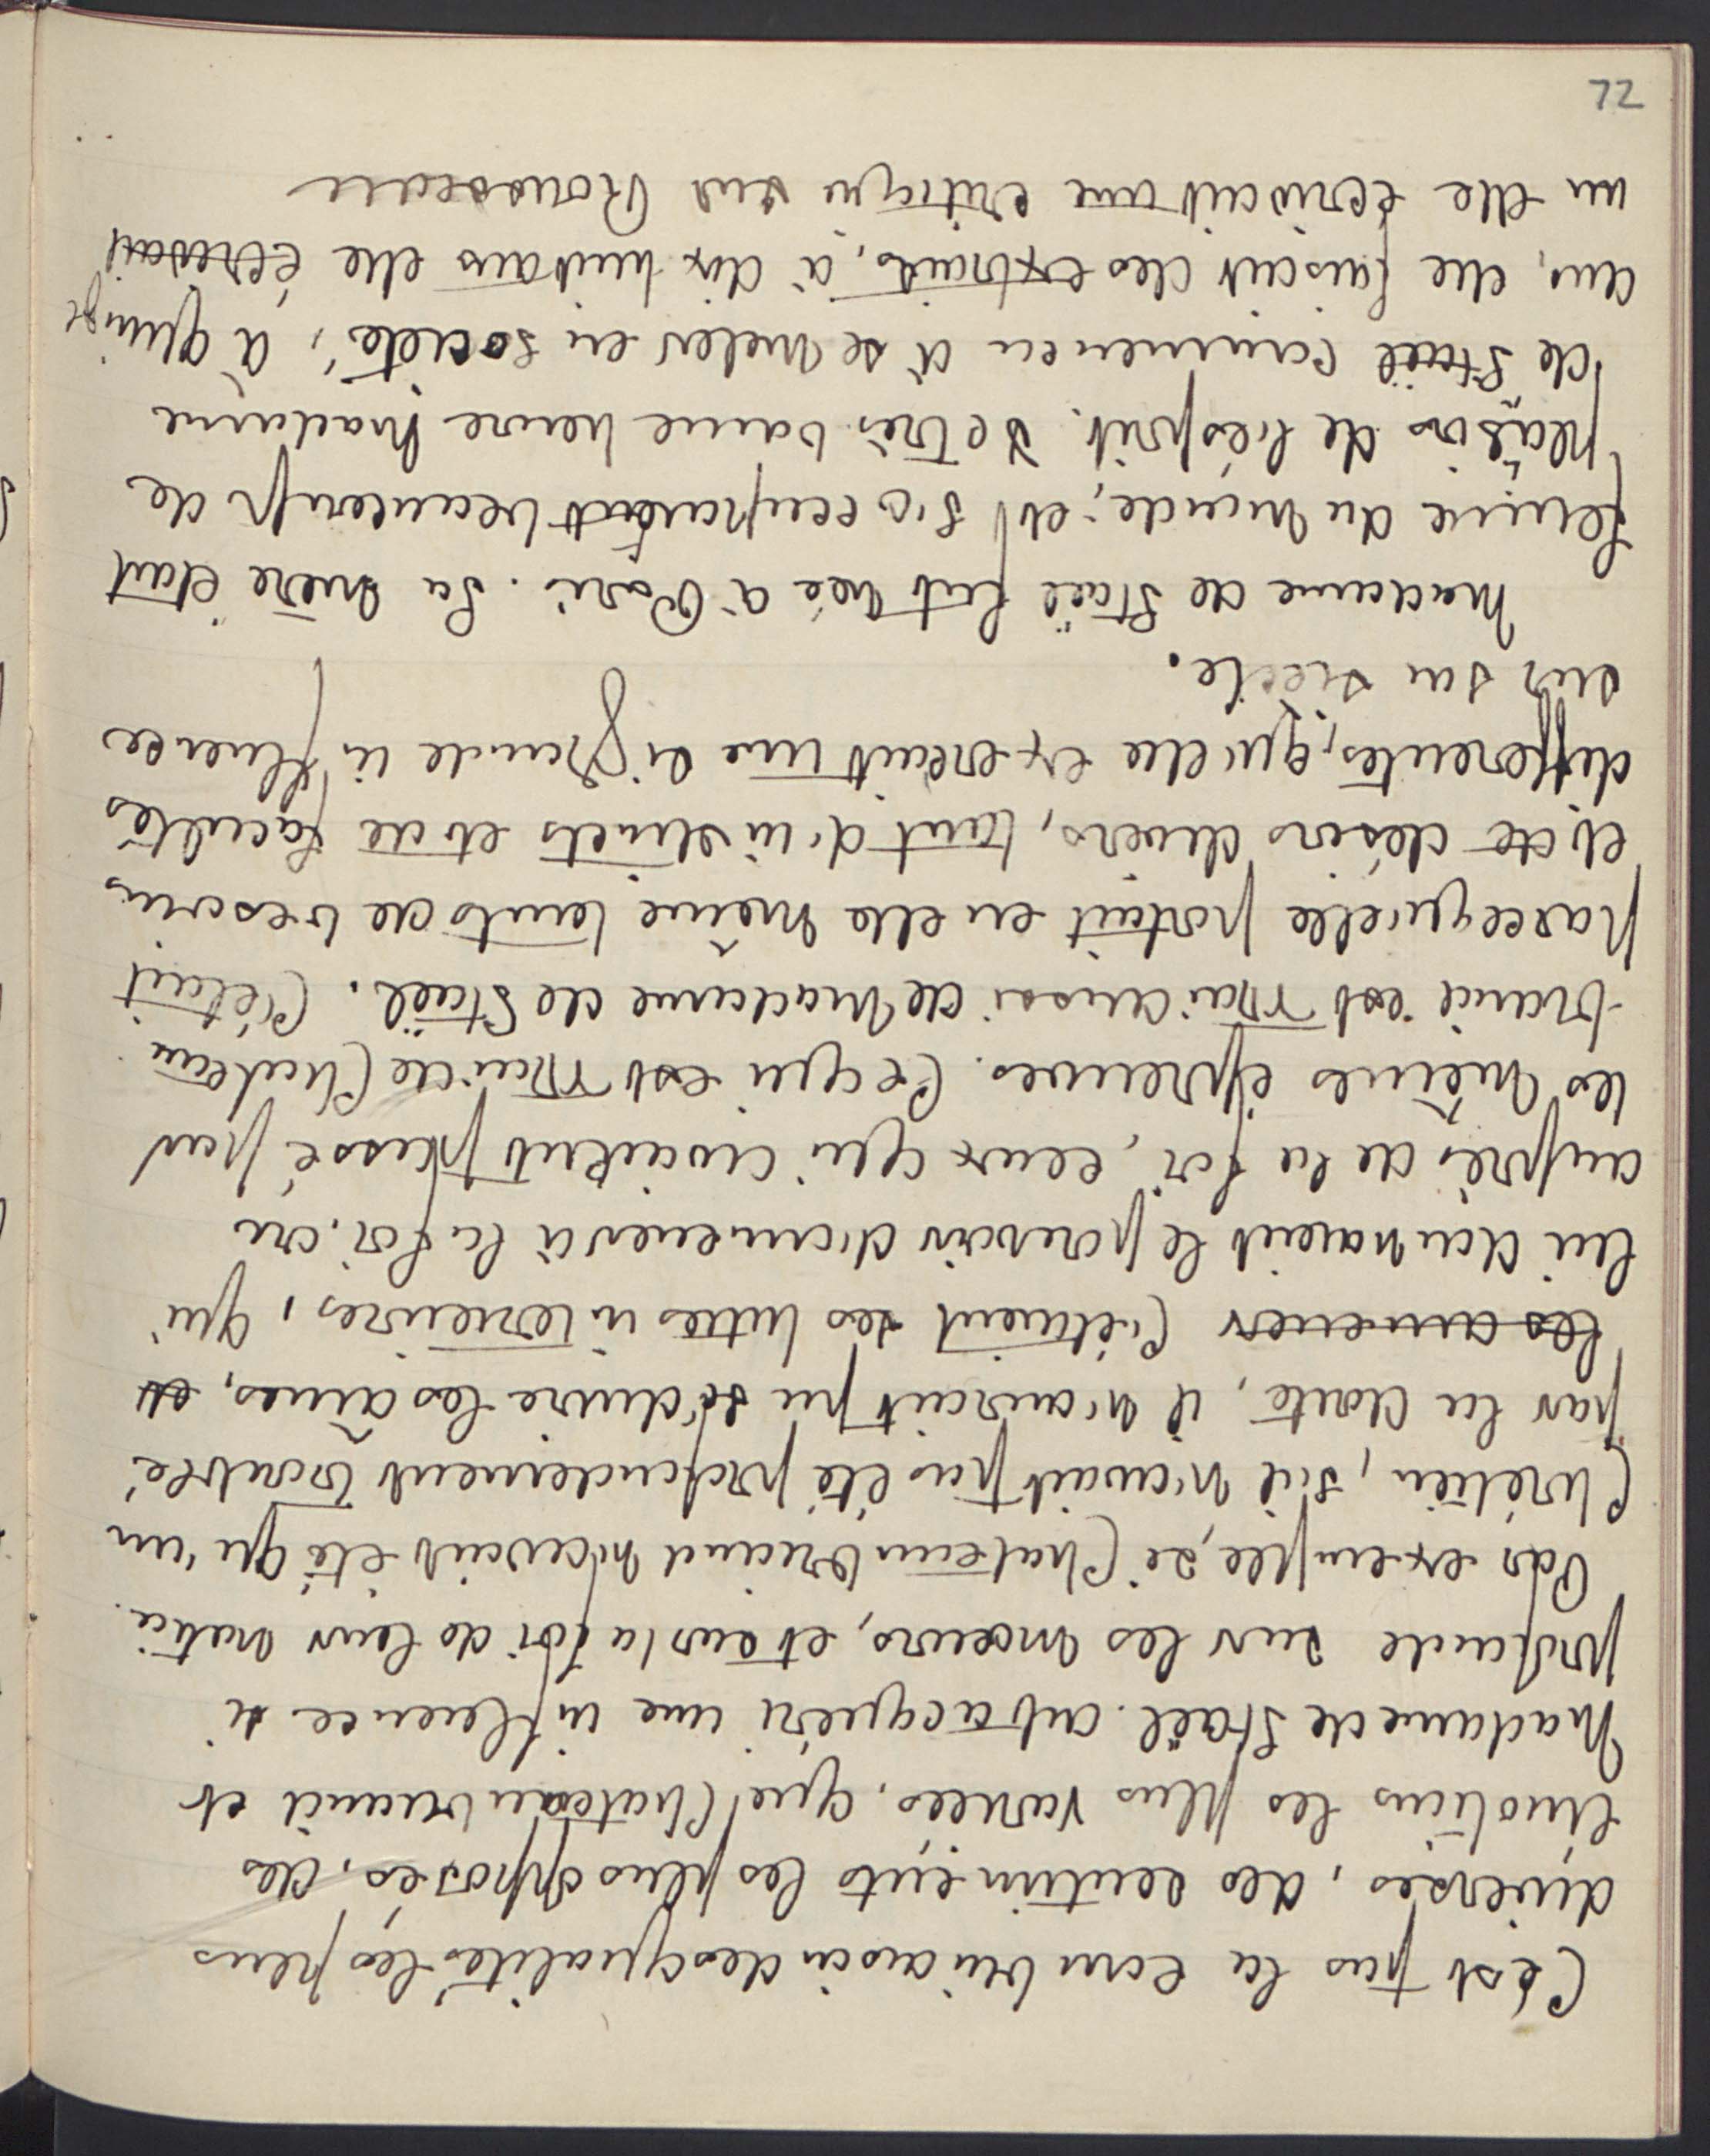 72
C'est pas la combinaison des qualités les plus
diverses, des sentiments les plus opposés, des
émotions les plus variées, que Chateaubriand et
Madame de Staël ont acquéri une influence si
profonde sur les moeurs, et sur la foi de leur natio.
Par exemple, si Chateaubriand n'avait été qu'un
Chrétien, s'il n'avait pas été profondement troublé
par la doute, il n'aurait pu séduire les âmes, et
les amener C'étaient ses luttes interieures, qui
lui donnaient le pouvoir d'amener à la foi, ou
auprès de la foi, ceux qui avaient passé par
les mêmes épreuves. Ce qui est vrai de Chateau
-briand est vrai aussi de Madame de Staël. C'était
parcequ'elle portait en elle même tants de besoin
et de désirs divers, tant d'instincts et de facultés
differentes, qu'elle exercait une si grande influence
sur sa siècle.
Madame de Staël fut née à Paris. Sa mère était
femme du monde, et s'occupaient beaucoup de
plaisirs de l'ésprit. De très bonne heure Madame
de Staël commenca à se meler en société, à quinze
ans, elle faisait des extraits, à dix huit ans elle écrivait
un elle écrivait une critique sur Rousseau